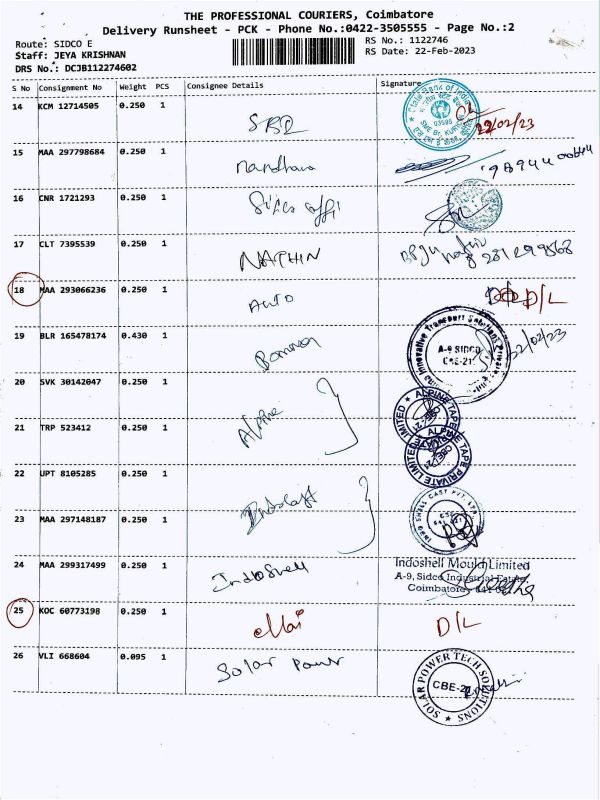 THE PROFESSIONAL COURIERS, Coimbatore
Delivery Runsheet - PCK - Phone No.:0422-3505555 - Page No.:2
Route: SIDCO E RS No.: 1122746
Staff: JEYA KRISHNAN RS Date: 22-Feb-2023
DRS No.: DCJB112274602
S No Consignment No Weight PCS Consignee Details Signature
14 KCM 12714505 0.250 1 State Bank of India 03595 SME Br. 22/02/23
15 MAA 297798684 0.250 1 nandhana
16 CNR 1721293 0.250 1
17 CLT 7395539 0.250 1 NAPHIN
18 MAA 293066236 0.250 1 Auto D/L
19 BLR 165478174 0.430 1 Innovative Transport Solutions A-9 SIDCO CBE-21 22/02/23
20 SVK 30142047 0.250 1 ALPINE TAPE PRIVATE LIMITED
21 TRP 523412 0.250 1 Alpine ALPINE TAPE PRIVATE LIMITED
22 UPT 8105285 0.250 1
23 MAA 297148187 0.250 1 INDO SHELL CAST PVT. LTD
24 MAA 299317499 0.250 1 IndoShell Indoshell Mould Limited
A-9, Sidco Industrial Estate,
Coimbatore
25 KOC 60773198 0.250 1 ellai D/L
26 VLI 668604 0.095 1 Solar Power SOLAR POWER TECH SOLUTIONS CBE-21